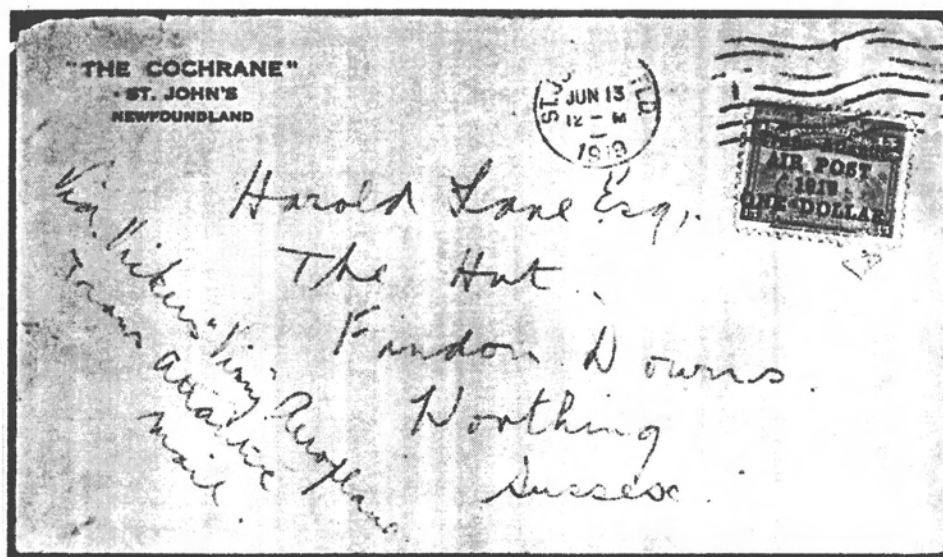 "THE COCHRANE"
ST. JOHN'S
NEWFOUNDLAND
JUN 13
12 - M
1919
AIR POST
1919
ONE DOLLAR
Harold Lane Esq.,
The Hut.
Findon Downs.
Worthing
Sussex.
Via. Vickers "Vimy" Aeroplane
Trans atlantic
mail.